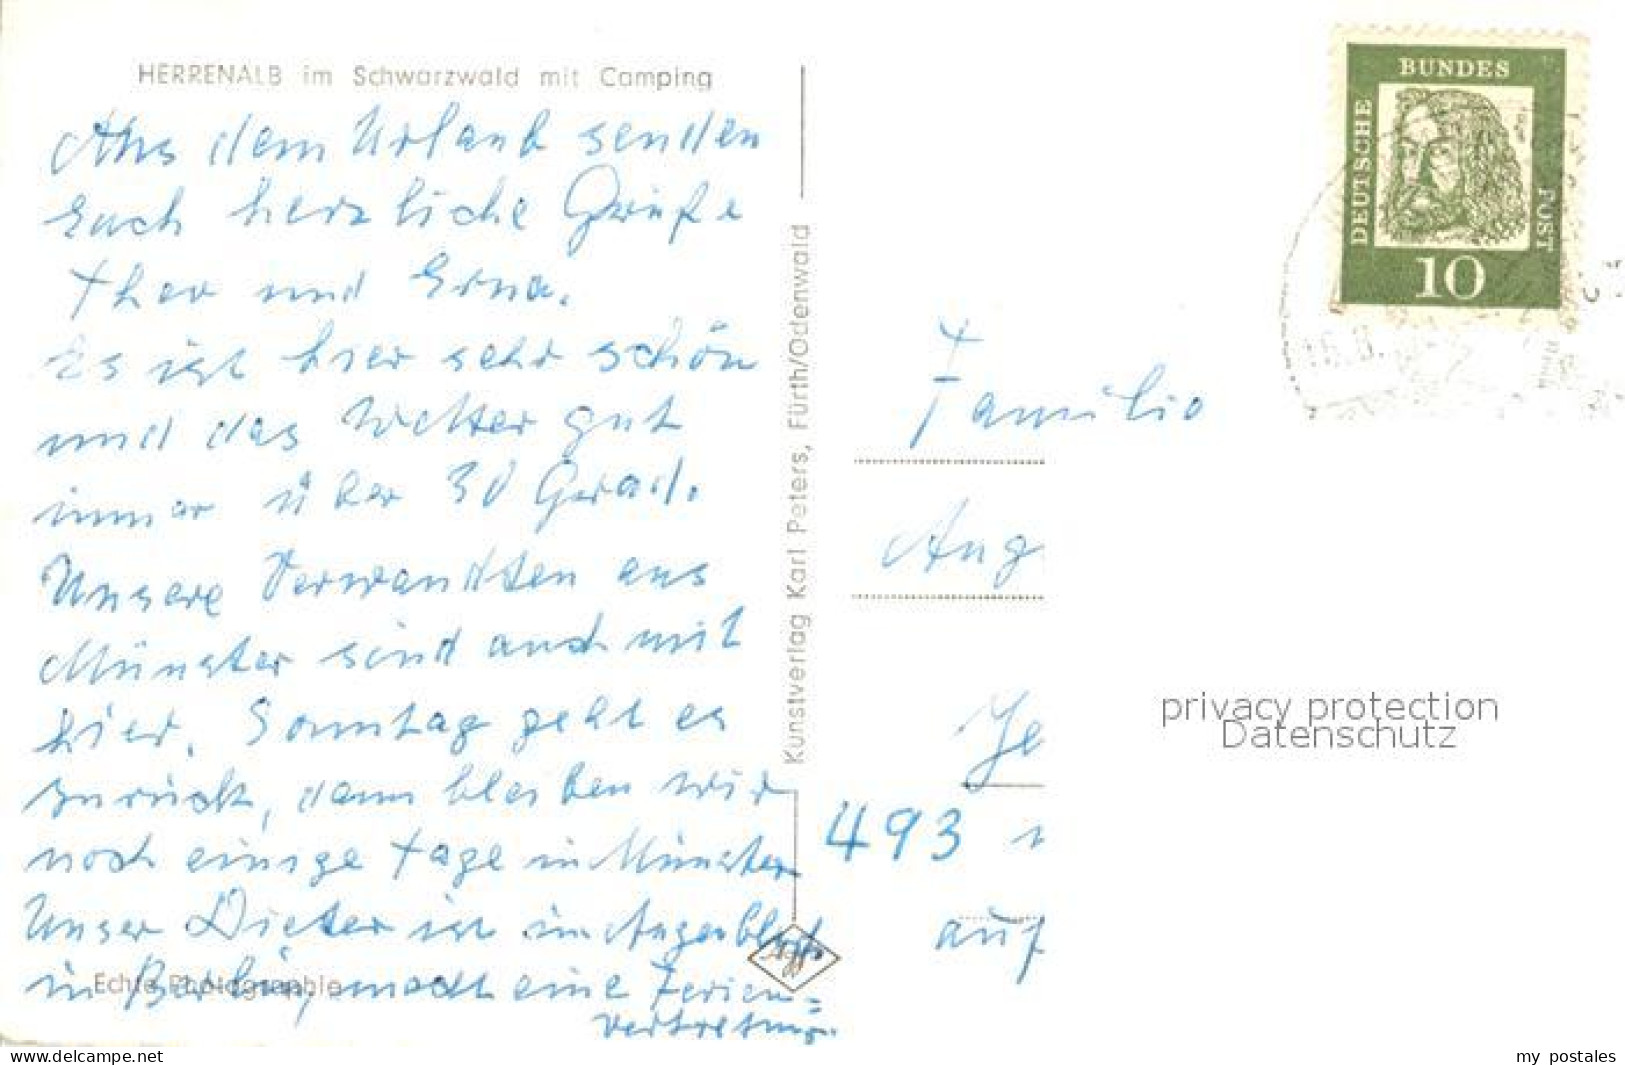 HERRENALB im Schwarzwald mit Camping
Aus dem Urlaub senden
Euch herzliche Grüße
Theo und Erna.
Es ist hier sehr schön
und das Wetter gut
immer über 30 Grad.
Unsere Verwandten aus
Münster sind auch mit
hier. Sonntag geht es
zurück, dann bleiben wir
noch einige Tage in Münster
Unser Dieter ist im Augenblick
in Berlin, macht eine Ferien=
vertretung.
Echte Photographie
Kunstverlag Karl Peters, Fürth/Odenwald
Agfa
DEUTSCHE BUNDES POST
10
Familie
Aug
493
auf
privacy protection
Datenschutz
www.delcampe.net
my_postales